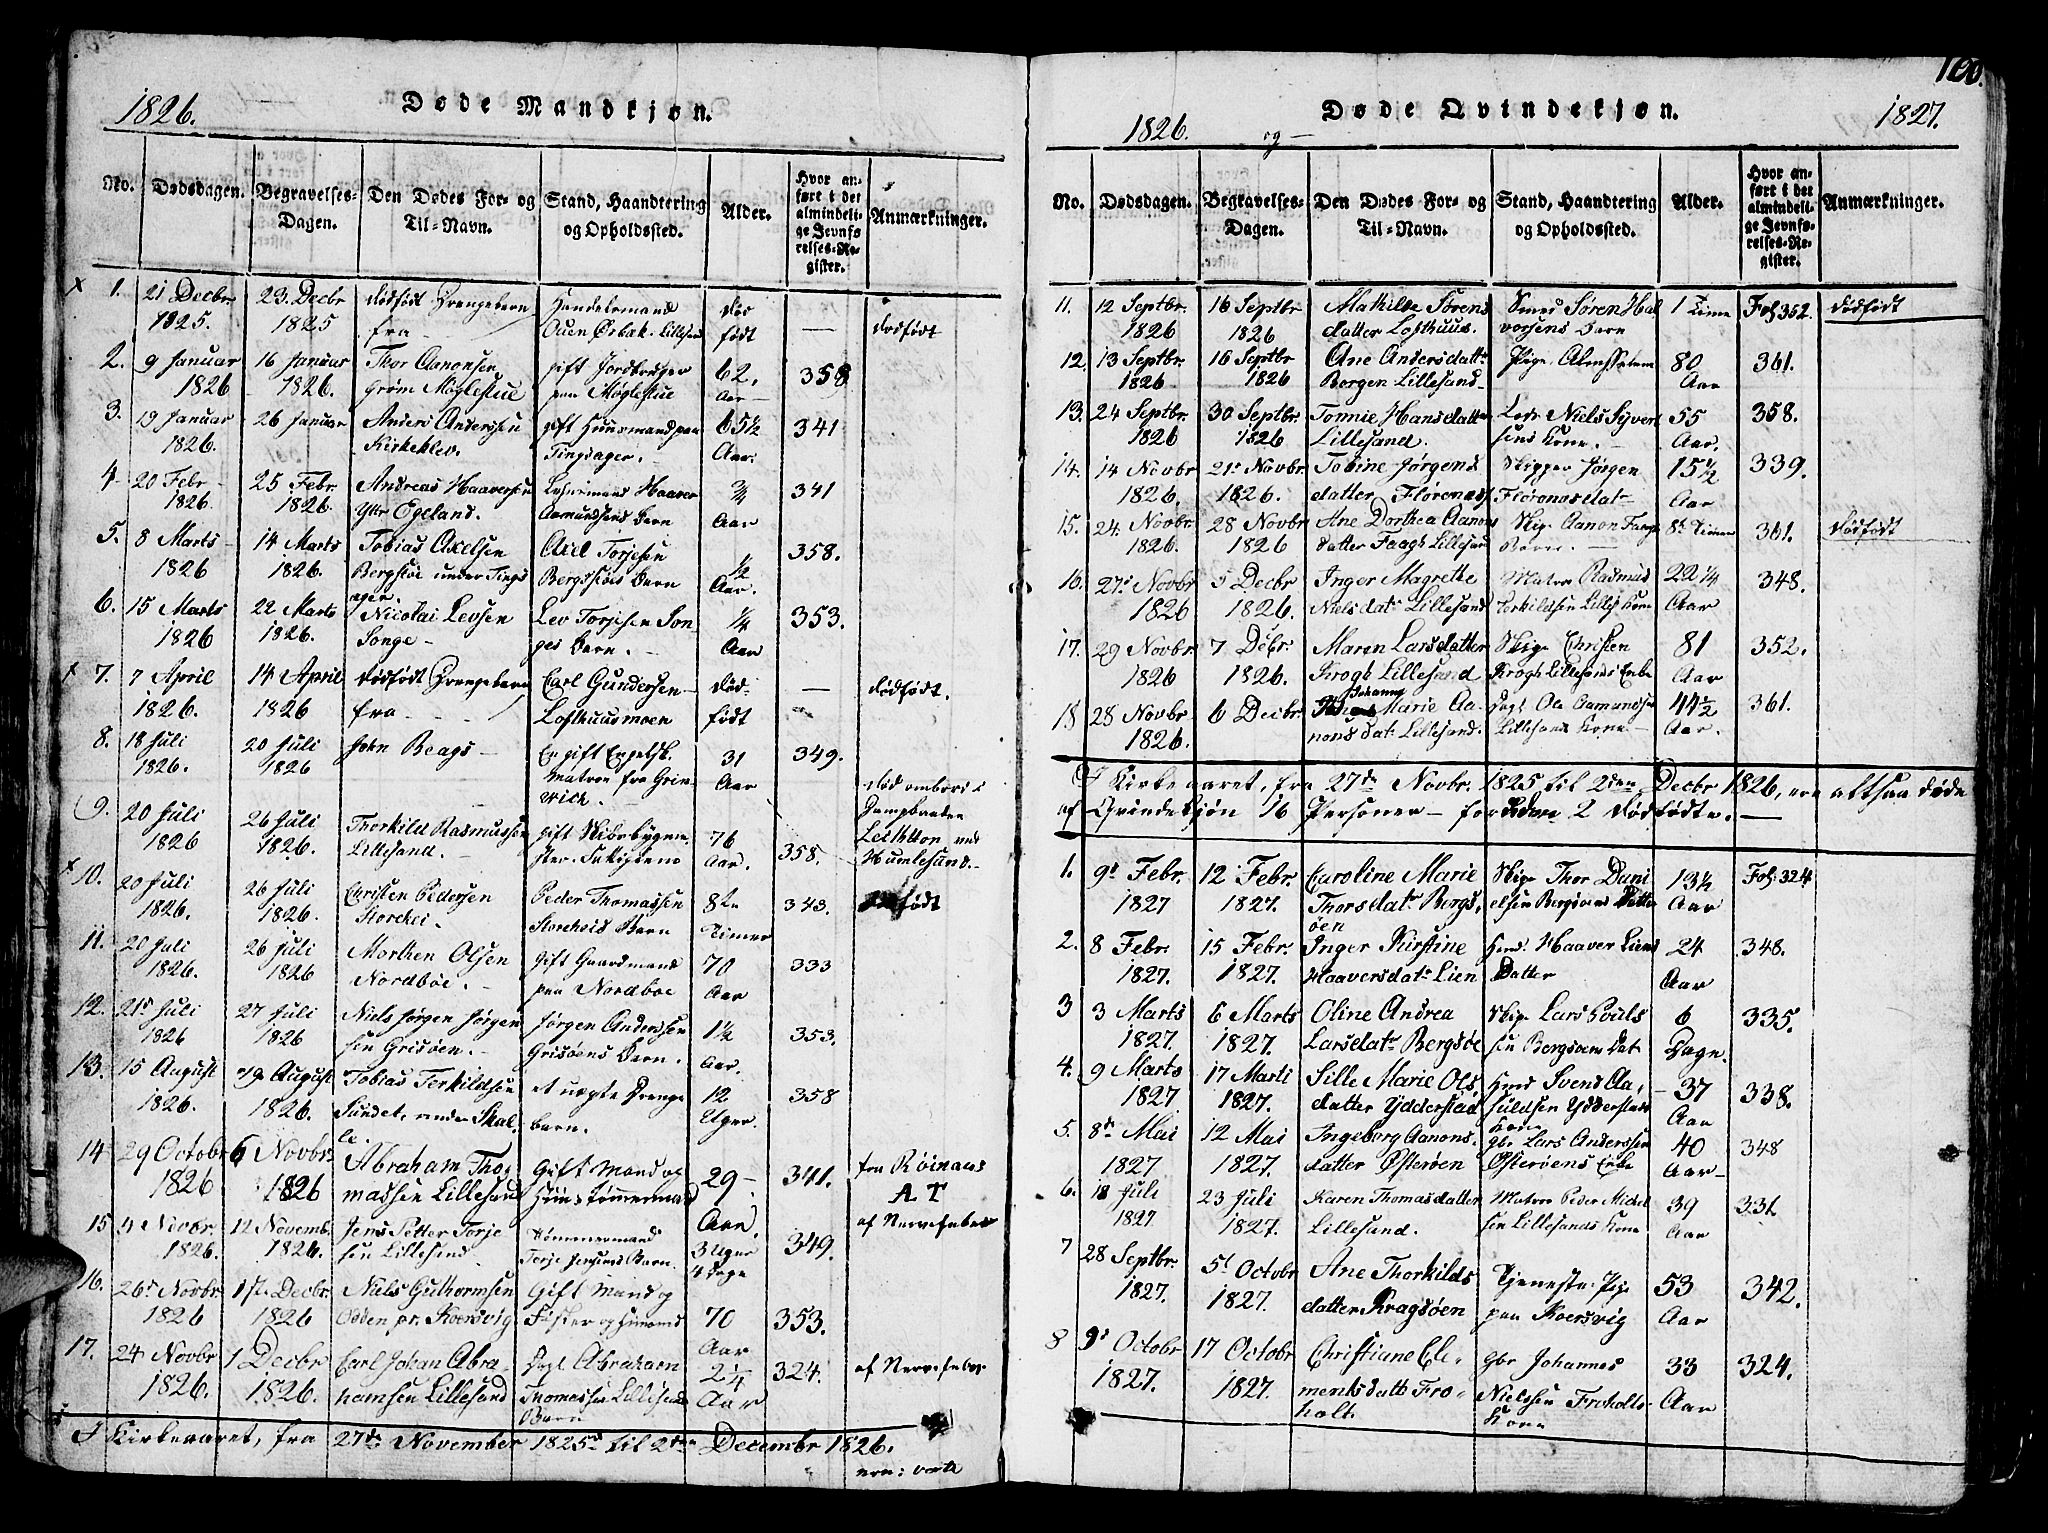 1826. Døde Mandkjøn.
No. Dødsdagen. Begravelses-Dagen. Den Dødes For- og Til-Navn. Stand, Haandtering og Opholdssted. Alder. Hvor anført i det almindelige Jevnførelses-Register. Anmærkninger.
1. 21 Decbr. 23. Decbr dødfødt Drengebarn Handelsmand død
1825. 1825 fra Ouen Ørbæk. Lillesand født — dødfødt
2. 9 Januar 16 Januar Thor Aanonsen gift Jordbruger 62, 358
1826 1826. Grøm Møglestue paa Møglestue Aar
3. 19 Januar 26 Januar Anders Anderssen gift Huusmand paa 65½ 341
1826. Kirkeklev. Tingsager. Aar.
4 20 Febr 25 Febr Andreas Haaversen Haaver ¾ 341
1826. 1826. Yttr Egeland. Aamundsens Barn Aar
5. 8 Marts 14 Marts Tobias Axelsen Axel Torjesen ½ 358.
1826 1826. Bergsøe under Tings Bergsøes Barn Aar.
ager.
6. 15 Marts 22 Marts Nicolai Levsen Lev Torjesen Son- ¼ 353.
1826 1826. Songe ges Barn. Aar
7. 7 April 14 April dødfødt Drengebarn Carl Gundersen død- — dødfødt.
1826. 1826 fra Lofthuusmoen født
8. 18 Juli 20 Juli John Beags En gift Engelsk 31 349.
1826. 1826 Matros fra Grin- Aar død ombord i
wich. Dampbaaden
9. 20 Juli 26 Juli Thorkild Rasmussen gift Skibsbygme- 76 358.
1826 1826. Lillesand. ster Aar. Humlesund.
10. 20 Juli 26 Juli Christen Pedersen Peder Thomassen 8te 343.
1826. 1826. Storehei. Storeheis Barn Timer
11. 20 Juli 26 Juli Morthen Olsen gift Gaardmand 70 333
1826. 1826 Nordbøe. paa Nordbøe Aar
12. 21 Juli 27 Juli Niels Jørgen Jørgen Jørgen Anderssen 1½ 353.
1826 1826 sen Grisøen. Grisøens Barn. Aar.
13. 15 August 19 August Tobias Terkildsen et uægte Drenge 12 358
1826. 1826. Sundet, under Skal- barn. Uger.
le.
14 29 Octobr 6 Novbr. Abraham Tho- Gift Mand og 29 341. fra Røinaas
1826 1826 massen Lillesand Huustømmermand Aar. A T
15 4 Novbr. 12 Novemb. Jens Petter Torje Tømmermand 3 Uger 349. af Nervefeber
1826. 1826. sen Lillesand Torje Jensens Barn. 4 Dage
16. 26 Novbr 1ste Decbr. Niels Guthormsen Gift Mand og 70 353.
1826 1826 Odden pr. Koersvig Fisker og Huusmd Aar
17. 24 Novbr 1 Decbr Carl Johan Abra- Dagl. Abraham 2¼ 324. af Nervefeber
1826. 1826. hamsen Lillesand Thomassen Lillesand Aar
Barn
I Kirkeaaret, fra 27de November 1825 til 2den Decembr 1826.
ere: verte
1826. og 1827. Døde Qvindekjøn.
No. Dødsdagen. Begravelses-Dagen. Den Dødes For- og Til-Navn. Stand, Haandtering og Opholdssted. Alder. Hvor anført i det almindelige Jevnførelses-Register. Anmærkninger.
11. 12 Septbr. 16 Septbr Mathilde Sørens Smed Søren Hal 1 Time Fol 352. dødfødt
1826 1826 datter Lofthuus. vorsens Barn
12. 13 Septbr. 16 Septbr Ane Andersdattr Pige 80 361.
1826 1826 Borgen Lillesand Aar
13. 24 Septbr. 30 Septbr. Tonnie Hansdatter Lods Niels Syver 55 358.
1826 1826 Lillesand. sens Kone. Aar.
14. 14 Novbr 21 Novbr Tobine Jørgens Skipper Jørgen 15½ 339.
1826. 1826. datter Flørenæs Florenæs dat Aar
15. 24. Novbr. 28 Novbr Ane Dorthea Aanons Skipr Aanon 8te Timer 361. dødfødt
1826. 1826 datter Faags Lillesand Barn.
16. 27 Novbr 5 Decbr Inger Magrethe Matros Rasmus 22¼ 348.
1826 1826. Nielsdatr Lillesand Torkildsen Lilles. Kone Aar
17. 29 Novbr. 7 Decbr. Maren Larsdatter Skipr Christen 81 352.
1826 1826. Krogh Lillesand Krogh Lillesands Enke Aar
Johanne
18 28 Novbr 6 Decbr. Marie Aa- Dagl Ole Aamundsen 44½ 361.
1826. nonsdatr Lillesand. Lillesands Kone Aar.
I Kirkeaaret, fra 27de Novbr. 1825 til 2den Decbr 1826, ere altsaa døde
af Qvindekjøn 16 Personer — foruden 2 dødfødte. —
1. 9 Febr. 12 Febr. Caroline Marie Skipr Thor Dani 13½ Fol. 324
1827 1827. Thorsdatr Bergs- elsen Bergsøens Datter Aar
øen
2. 8 Febr. 15 Febr. Inger Kirstine Haaver Liens 24 348.
1827. 1827. Haaversdatr Lien Datter Aar
3 3 Marts 6 Marts Oline Andrea Skipr Lars Povels 6 335.
1827. 1827. Larsdatr Bergsøe sen Bergsøens Dat Dage.
4. 9 Marts 17 Marti Sille Marie Ols, Svend Aa, 37 338.
1827 1827. datter Ydderstad suldsen Ydderstads Aar
Kone
5. 8 Mai 12 Mai Ingeborg Aanons. Lars Anderssen 40 348
1827 1827. datter Østerøen Østerøens Enke Aar
6. 18 Juli 23 Juli Karen Thomasdatter Matros Peder Michel 39 331
1827. 1827. Lillesand. sen Lillesands Kone Aar
7 28 Septbr. 5 Octobr Ane Thorkilds Tjeneste Pige 53 342.
1827. 1827. datter Kragsøen paa Koersvig Aar
8 9 Octobr 17 Octobr Christiane Cle- Johannes 33 324.
1827. 1827. mentsdattr Fro- Nielssen Froholts Aar
holt. Kone